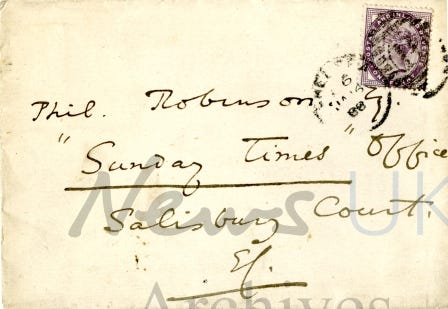 Phil. Robinson Esq.
"Sunday Times" Office
Salisbury Court.
E.C.
News UK
Archives